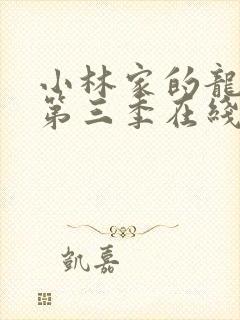 小林家的龍
第三季在綫
凱嘉